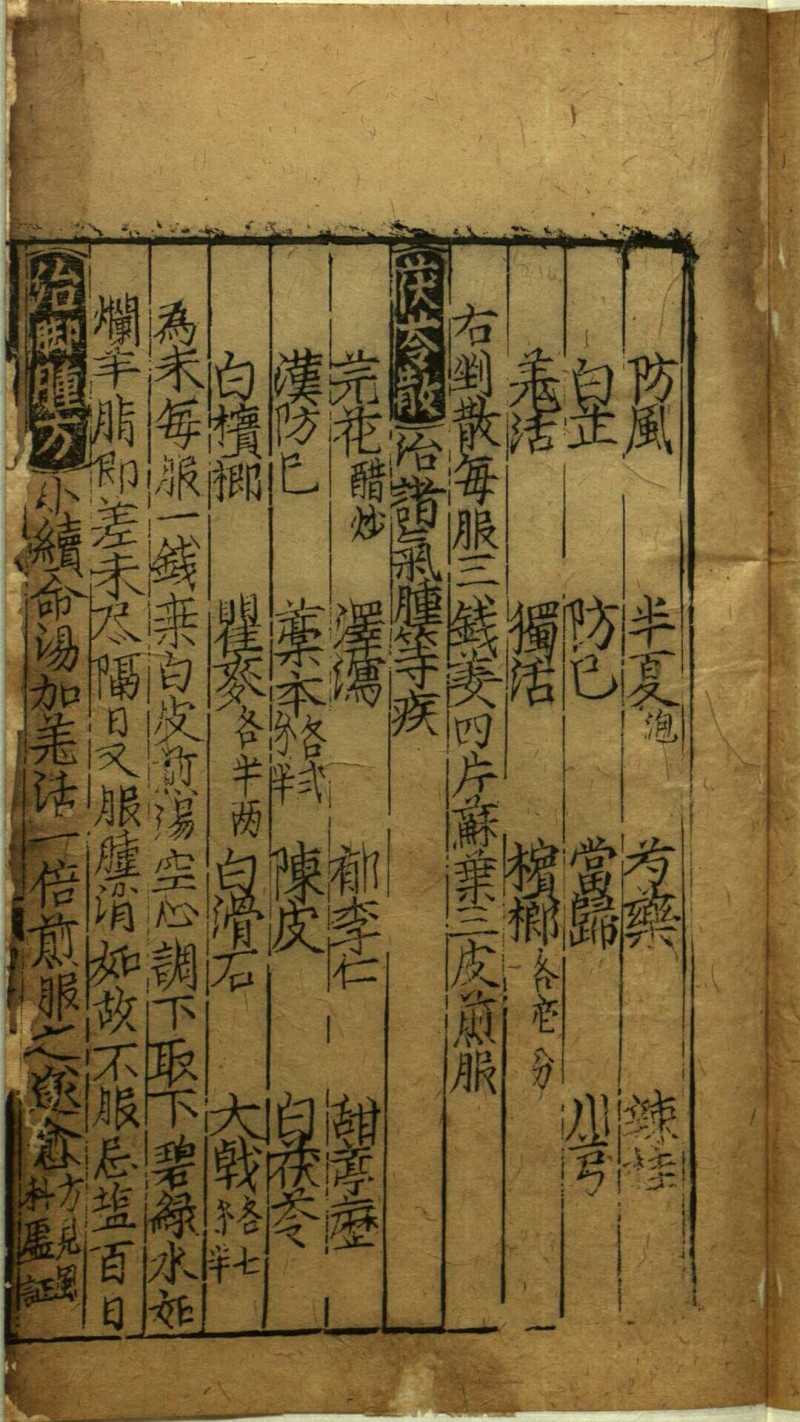 防風 半夏泡 芍藥 辣桂
白芷 防已 當歸 川芎
羗活 獨活 檳榔各壱分
右剉散每服三錢姜四片蘇葉三皮煎服
茯苓散治諸氣腫等疾
芫花醋炒 澤瀉 郁李仁 甜葶藶
漢防已 藁本各弐分半 陳皮 白茯苓
白檳榔 瞿麥各半两 白滑石 大戟各七分半
為末每服一錢桒白皮煎湯空心調下取下碧綠水如
爛羊脂即差未尽隔日又服腫消如故不服忌塩百日
治脚腫方小續命湯加羗活一倍煎服之方見風科虛証